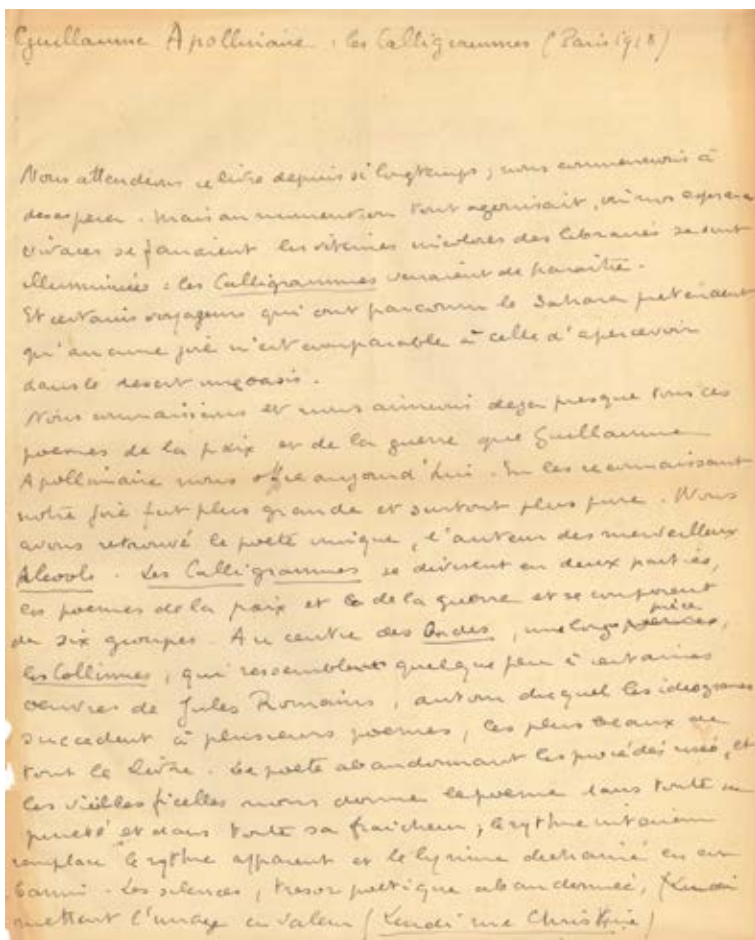 Guillaume Apollinaire : les Calligrammes (Paris 1918)
Nous attendions ce livre depuis si longtemps, nous commencions à
desesperer. Mais au moment où tout agonisait, où nos
vivaces se fanaient les vitrines des librairies se sont
illuminées : les Calligrammes venaient de paraître.
Et certains voyageurs qui ont parcouru le Sahara pretendent
qu'aucune joie n'est comparable à celle d'apercevoir
dans le desert une oasis.
Nous connaissions et nous aimions deja presque tous ces
poemes de la paix et de la guerre que Guillaume
Apollinaire nous offre aujourd'hui. En les reconnaissant
notre joie fut plus grande et surtout plus pure. Nous
avons retrouvé le poete unique, l'auteur des merveilleux
Alcools. Les Calligrammes se divisent en deux parties,
les poemes de la paix et de la guerre et se composent
de six groupes. Au centre des Ondes, une longue piece,
les Collines, qui ressemblent quelque peu à certaines
oeuvres de Jules Romains, autour duquel les ideogrammes
succedent à plusieurs poemes, les plus beaux de
tout le livre. Le poete abandonnant les procédés usés, et
les vieilles ficelles nous donne le poeme dans toute sa
pureté et dans toute sa fraicheur, le rythme interieur
remplace le rythme apparent et le lyrisme en est
banni. Les silences, tresor poetique abandonné,
mettant l'image en valeur (Lundi rue Christine)